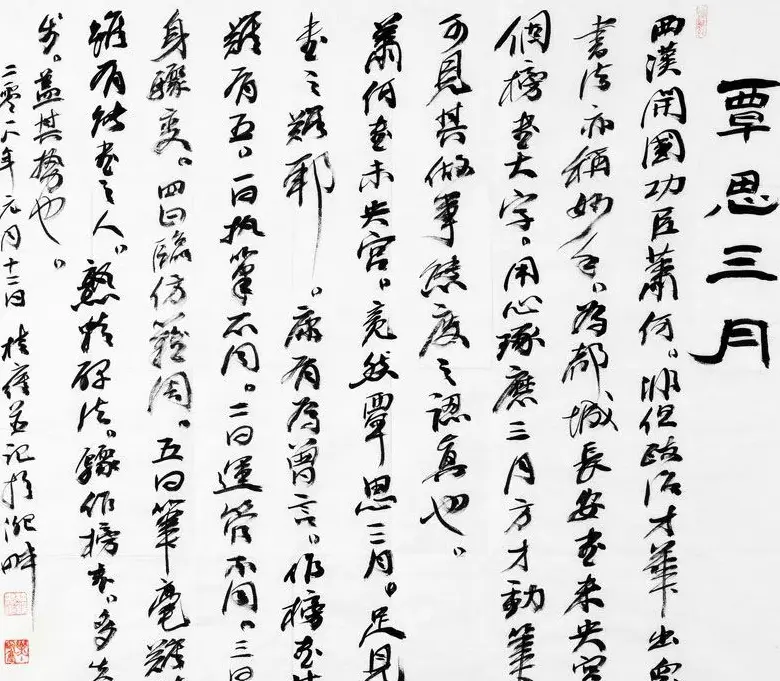 覃思三月
西漢開國功臣蕭何。非但政治才華出眾
書法亦稱妙手。為都城長安書未央宮
個榜書大字。用心琢磨三月方才動筆
可見其做事態度之認真也。
蕭何書未央宮。竟然覃思三月。足見
書之難耶。康有為曾言。作榜書
難有五。一曰執筆不同。二曰運管不同。三曰
身驟變。四曰臨仿難周。五曰筆毫難
雖有能書之人。熟精碑法。驟作榜書。多失
步。蓋其勢也。
二零一八年元月十二日 桂雍并記於淝畔